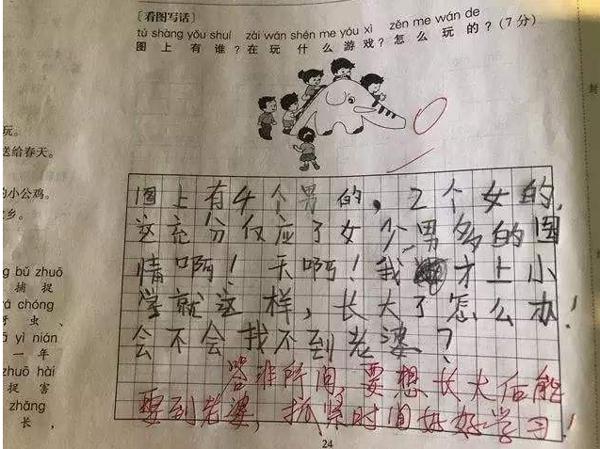 [看图写话]
tú shàng yǒu shuí zài wán shén me yóu xì zěn me wán de
图上有谁?在玩什么游戏?怎么玩的?(7分)
封
玩。
送给春天。
小公鸡。
乡。
bǔ zhuō
捕 捉
chóng
虫、
yì nián
一 年
zhuō hài
捉 害
zhǎng
长,
图上有4个男的,2个女的,
这充分仅应了女少男多的国
情啊!天啊!我才上小
学就这样,长大了怎么办!
会不会找不到老婆?
答非所问,要想长大后能
娶到老婆,抓紧时间好好学习!
24